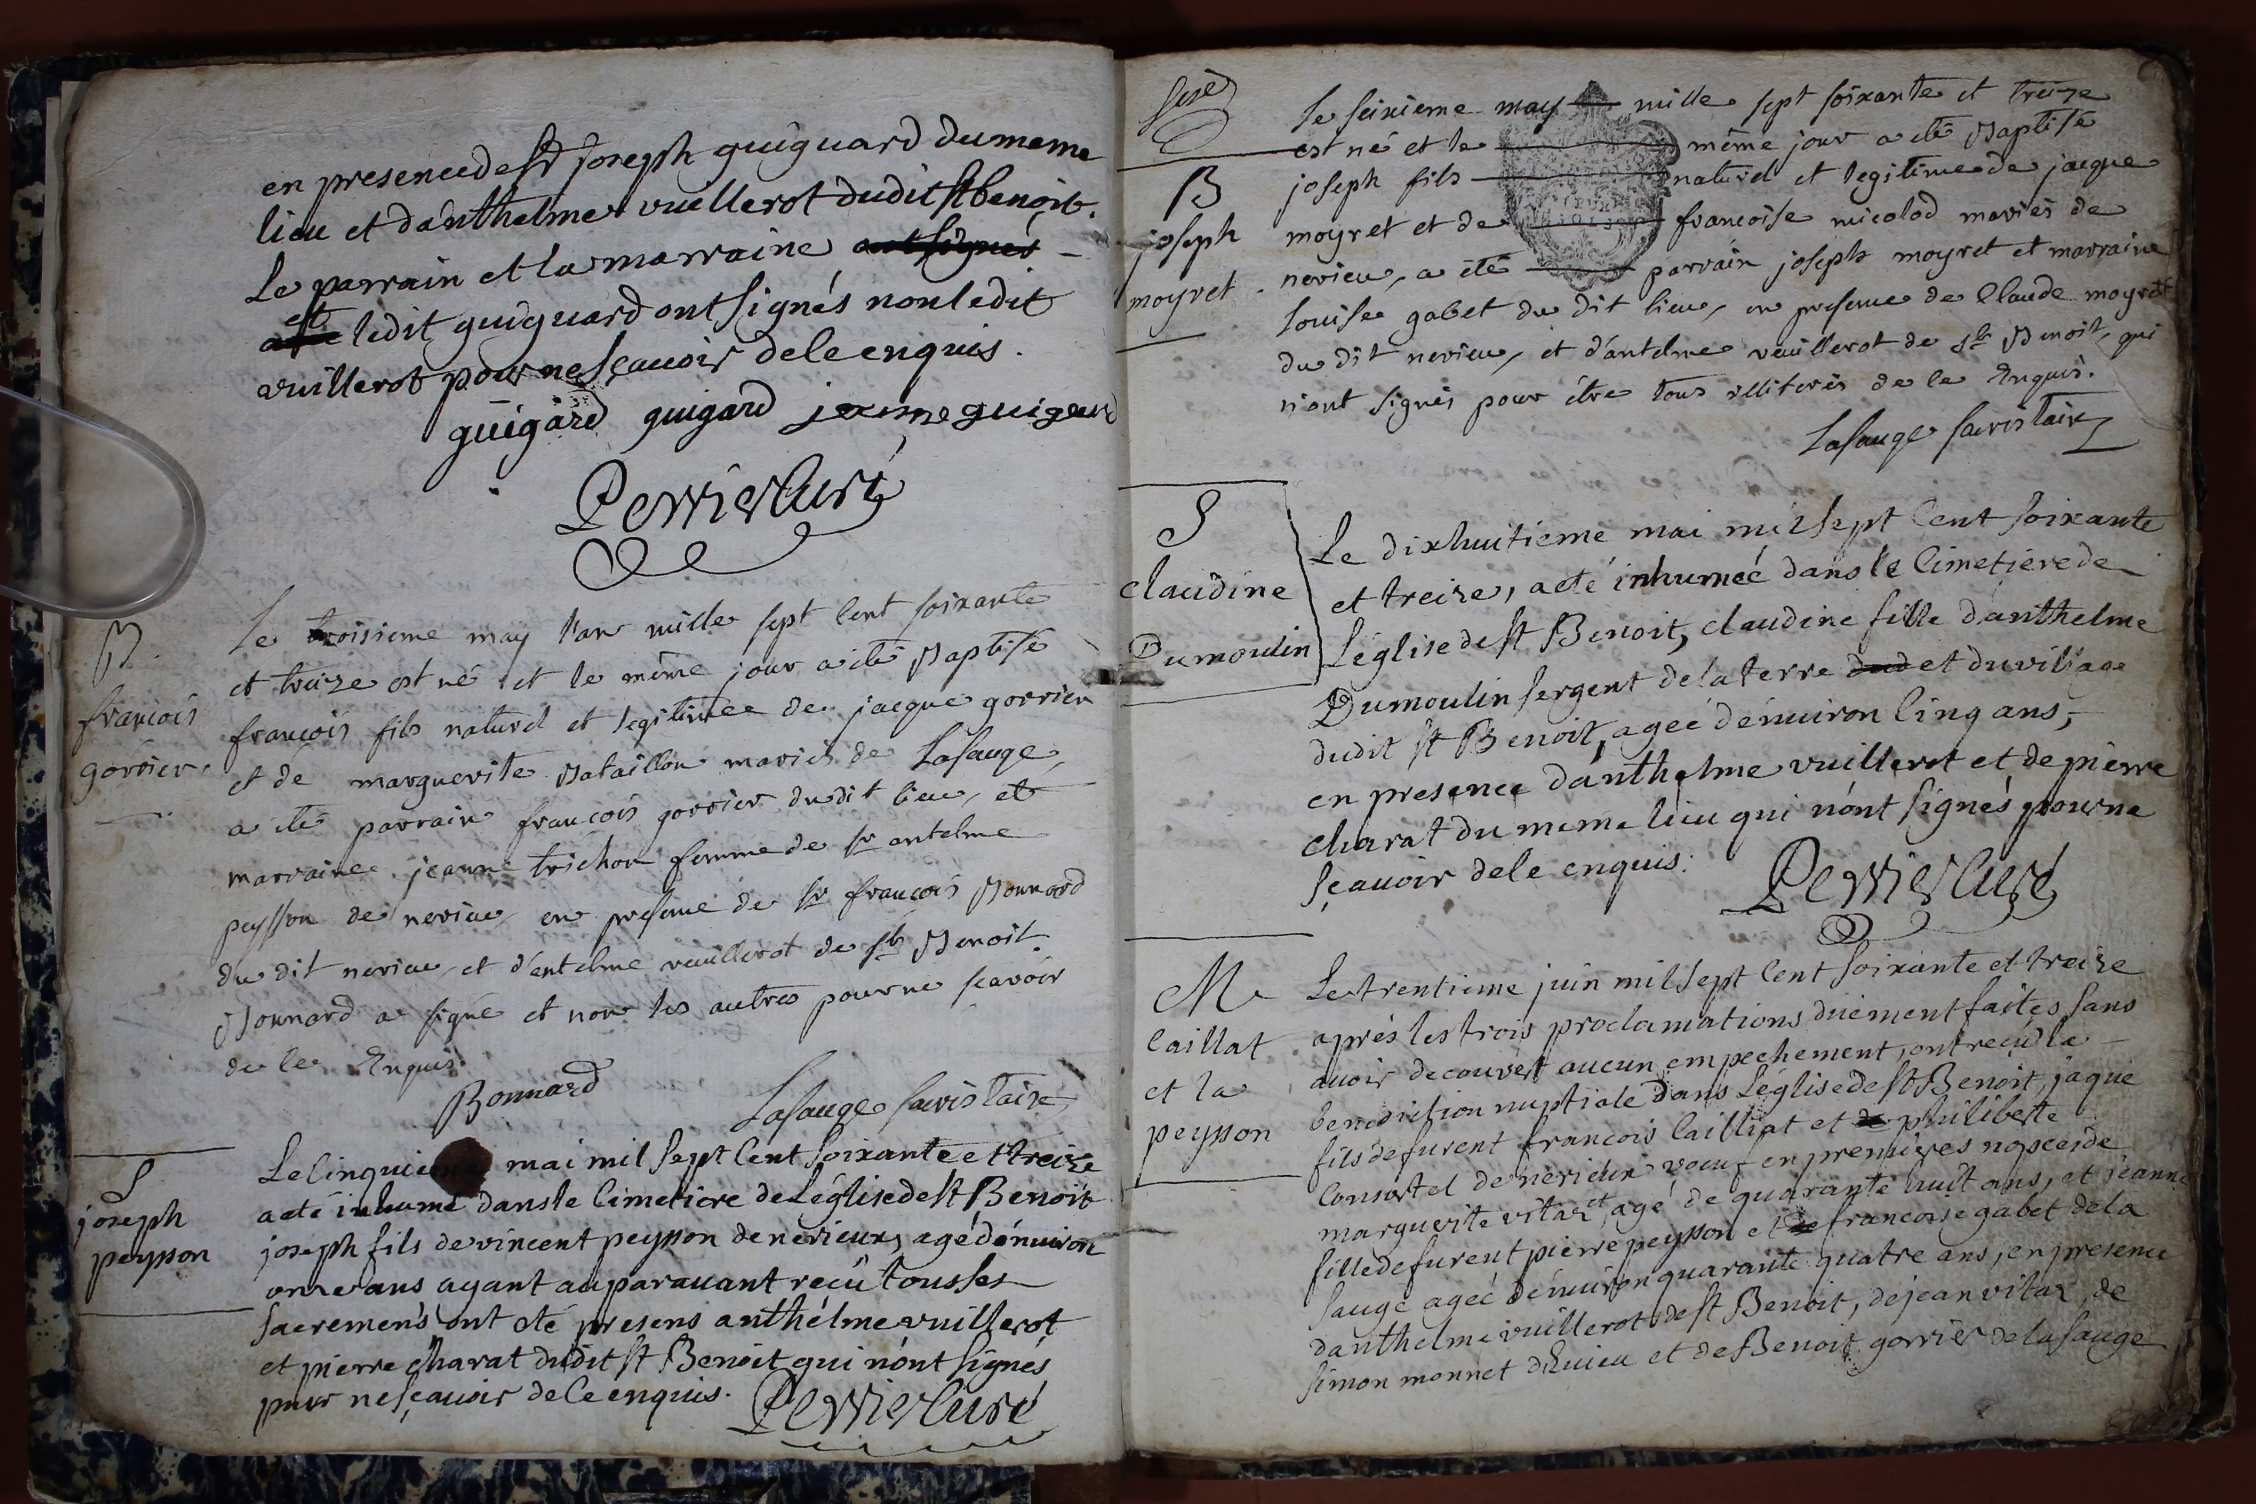 en presence de Sr joseph guiguard du meme
lieu et d'anthelme vuillerot dudit St benoit.
Le parrain et la marraine ont signés
et ledit guiguard ont signés non ledit
vuillerot pour ne sçavoir de le enquis.
guigard guigard jerome guigard
Perrier curé
B
francois
gorrier
Le troisieme may l'an mille sept cent soixante
et treize est né et le même jour a été Baptisé
francois fils naturel et legitime de jacque gorrier
et de marguerite Bataillon mariés de Lasauge,
a été parrain francois gorrier du dit lieu, et
marraine jeanne trichon femme de sr antelme
peysson de nerieu, en presence de sr francois Bonnard
du dit nerieu, et d'antelme veuillerot de St Benoit.
Bonnard a signé et non les autres pour ne scavoir
de le Enquis.
Bonnard
Lasauge sacristain
S
joseph
peysson
Le Cinquieme mai mil sept Cent soixante et treize
a eté inhumé dans le Cimetiere de Léglise de St Benoit
joseph fils de vincent peysson de nerieux, agé d'énuiron
onze ans ayant auparauant recû tous ses
sacremens ont été presens anthélme vuillerot
et pierre charat dudit St Benoit qui n'ont signés
pour ne sçauoir de le enquis. Perrier curé
B
joseph
moyret
Le seixieme may mille sept soixante et treize
est né et le même jour a été Baptisé
joseph fils naturel et legitime de jacque
moyret et de francoise micolod mariés de
nerieu, a été parrain joseph moyret et marraine
Louise gabet du dit lieu, en presence de Claude moyret
du dit nerieu, et d'antelme veuillerot de St Benoit, qui
n'ont signés pour être tous illiterés de le Enquis.
Lasauge sacristain
S
claudine
Dumoulin
Le dixhuitieme mai mil sept Cent soixante
et treize, a eté inhumeé dans le Cimetiere de
Léglise de St Benoit, claudine fille d'anthelme
Dumoulin sergent de la terre dud et du village
dudit St Benoit, ageé d'énuiron Cinq ans,
en presence d'anthelme vuillerot et de pierre
charat du meme lieu qui n'ont signés pour ne
sçauoir de le enquis. Perrier curé
M
Caillat
et la
peysson
Le trentieme juin mil sept Cent soixante et treize
aprés les trois proclamations düement faites sans
auoir decouvert aucun empechement, ont reçu la
benediction nuptiale dans Léglise de St Benoit, jaque
fils de furent francois Cailliat et de philiberte
Consortel de nerieux voeuf en premieres nopces de
marguerite vitoz, agé de quarante huit ans, et jeanne
fille de furent pierre peysson et de francoise gabet de la
sauge ageé d'énuiron quarante quatre ans, en presence
d'anthelme vuillerot de St Benoit, de jean vitoz, de
simon monnet d'Euieu et de Benoit gorrier de la sauge